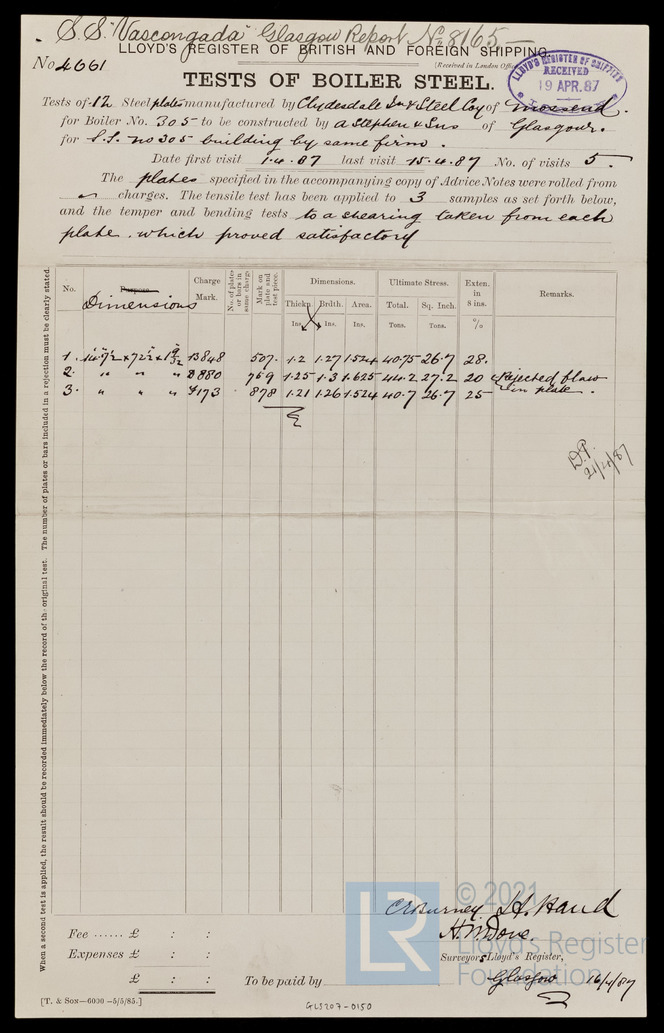 S.S. "Vascongada" Glasgow Report No. 8165
LLOYD'S REGISTER OF BRITISH AND FOREIGN SHIPPING.
No 4661
(Received in London Office
LLOYD'S REGISTER OF SHIPPING
RECEIVED
19 APR. 87
TESTS OF BOILER STEEL.
Tests of 12 Steel plates manufactured by Clydesdale Irn & Steel Coy of Mossend.
for Boiler No. 305 to be constructed by A Stephen & Sns of Glasgow.
for S.S. no 305 building by same firm.
Date first visit 1.4.87 last visit 15.4.87 No. of visits 5.
The plates specified in the accompanying copy of Advice Notes were rolled from
charges. The tensile test has been applied to 3 samples as set forth below,
and the temper and bending tests to a shearing taken from each
plate. which proved satisfactory
No. Purpose. Charge Mark. No. of plates or bars in same charge. Mark on plate and test piece. Dimensions. Ultimate Stress. Exten. in 8 ins. Remarks.
Dimensions
Thickn. Brdth. Area. Total. Sq. Inch.
Ins. Ins. Ins. Tons. Tons. %
1. 14.7½ x 72½ x 1 9/32 B848 507. 1.2 1.27 1.524 40.75 26.7 28.
2. " " " B880 759 1.25 1.3 1.625 44.2 27.2 20 Rejected flaw
3. " " " 4173 878 1.21 1.26 1.524 40.7 26.7 25 in plate.
D.P.
21/4/87
When a second test is applied, the result should be recorded immediately below the record of the original test. The number of plates or bars included in a rejection must be clearly stated.
© 2021
LR
Lloyd's Register
Foundation
H. Hand
Fee ...... £ : :
Expenses £ : :
Surveyors Lloyd's Register,
£ : :
To be paid by
Glasgow 16/4/87
[T. & Son—6000—5/5/85.]
GLS207-0150